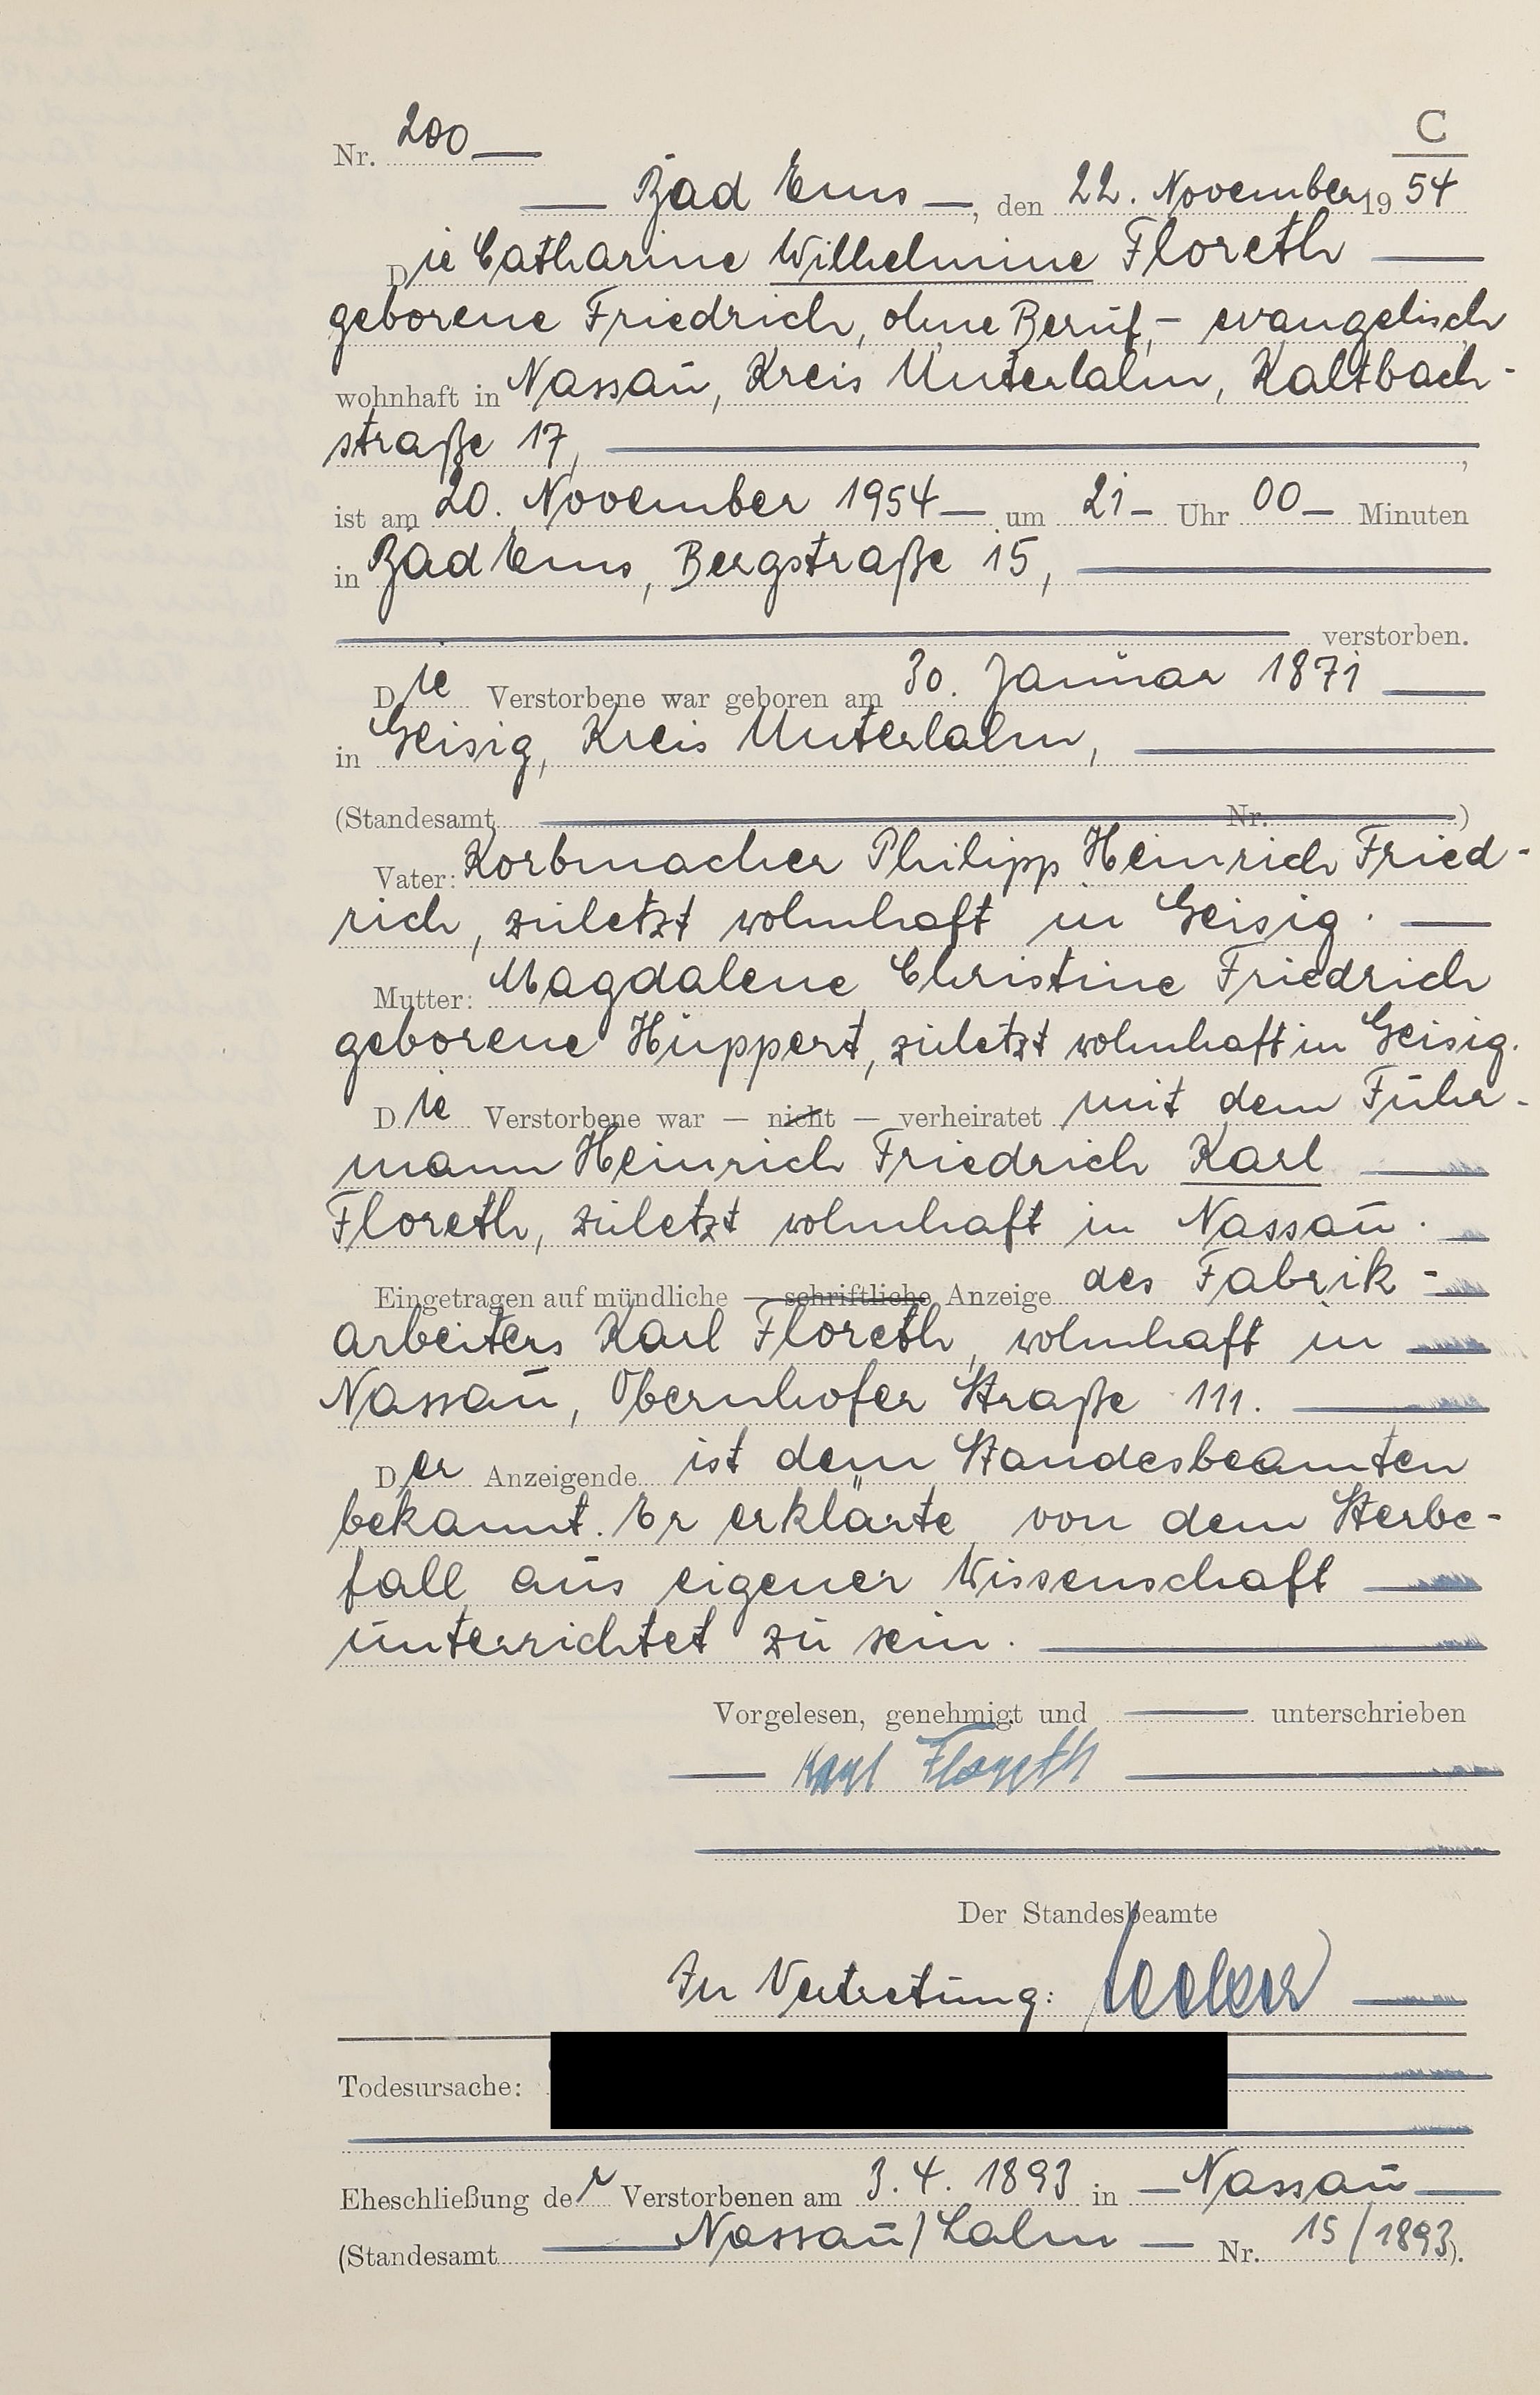 C
Nr. 200
Bad Ems, den 22. November 1954
Die Catharine Wilhelmine Floreth
geborene Friedrich, ohne Beruf, - evangelisch
wohnhaft in Nassau, Kreis Unterlahn, Kaltbach-
straße 17,
ist am 20. November 1954 um 21 Uhr 00 Minuten
in Bad Ems, Bergstraße 15,
verstorben.
Die Verstorbene war geboren am 30. Januar 1871
in Geisig, Kreis Unterlahn,
(Standesamt Nr. )
Vater: Korbmacher Philipp Heinrich Fried-
rich, zuletzt wohnhaft in Geisig.
Mutter: Magdalene Christine Friedrich
geborene Huppert, zuletzt wohnhaft in Geisig.
Die Verstorbene war – nicht – verheiratet mit dem Fuhr-
mann Heinrich Friedrich Karl
Floreth, zuletzt wohnhaft in Nassau.
Eingetragen auf mündliche – schriftliche Anzeige des Fabrik-
arbeiters Karl Floreth, wohnhaft in
Nassau, Obernhofer Straße 111.
Der Anzeigende ist dem Standesbeamten
bekannt. Er erklärte von dem Sterbe-
fall aus eigener Wissenschaft
unterrichtet zu sein.
Vorgelesen, genehmigt und unterschrieben
Karl Floreth
Der Standesbeamte
In Vertretung:
Todesursache:
Eheschließung der Verstorbenen am 3.4.1893 in Nassau
(Standesamt Nassau/Lahn Nr. 15/1893).